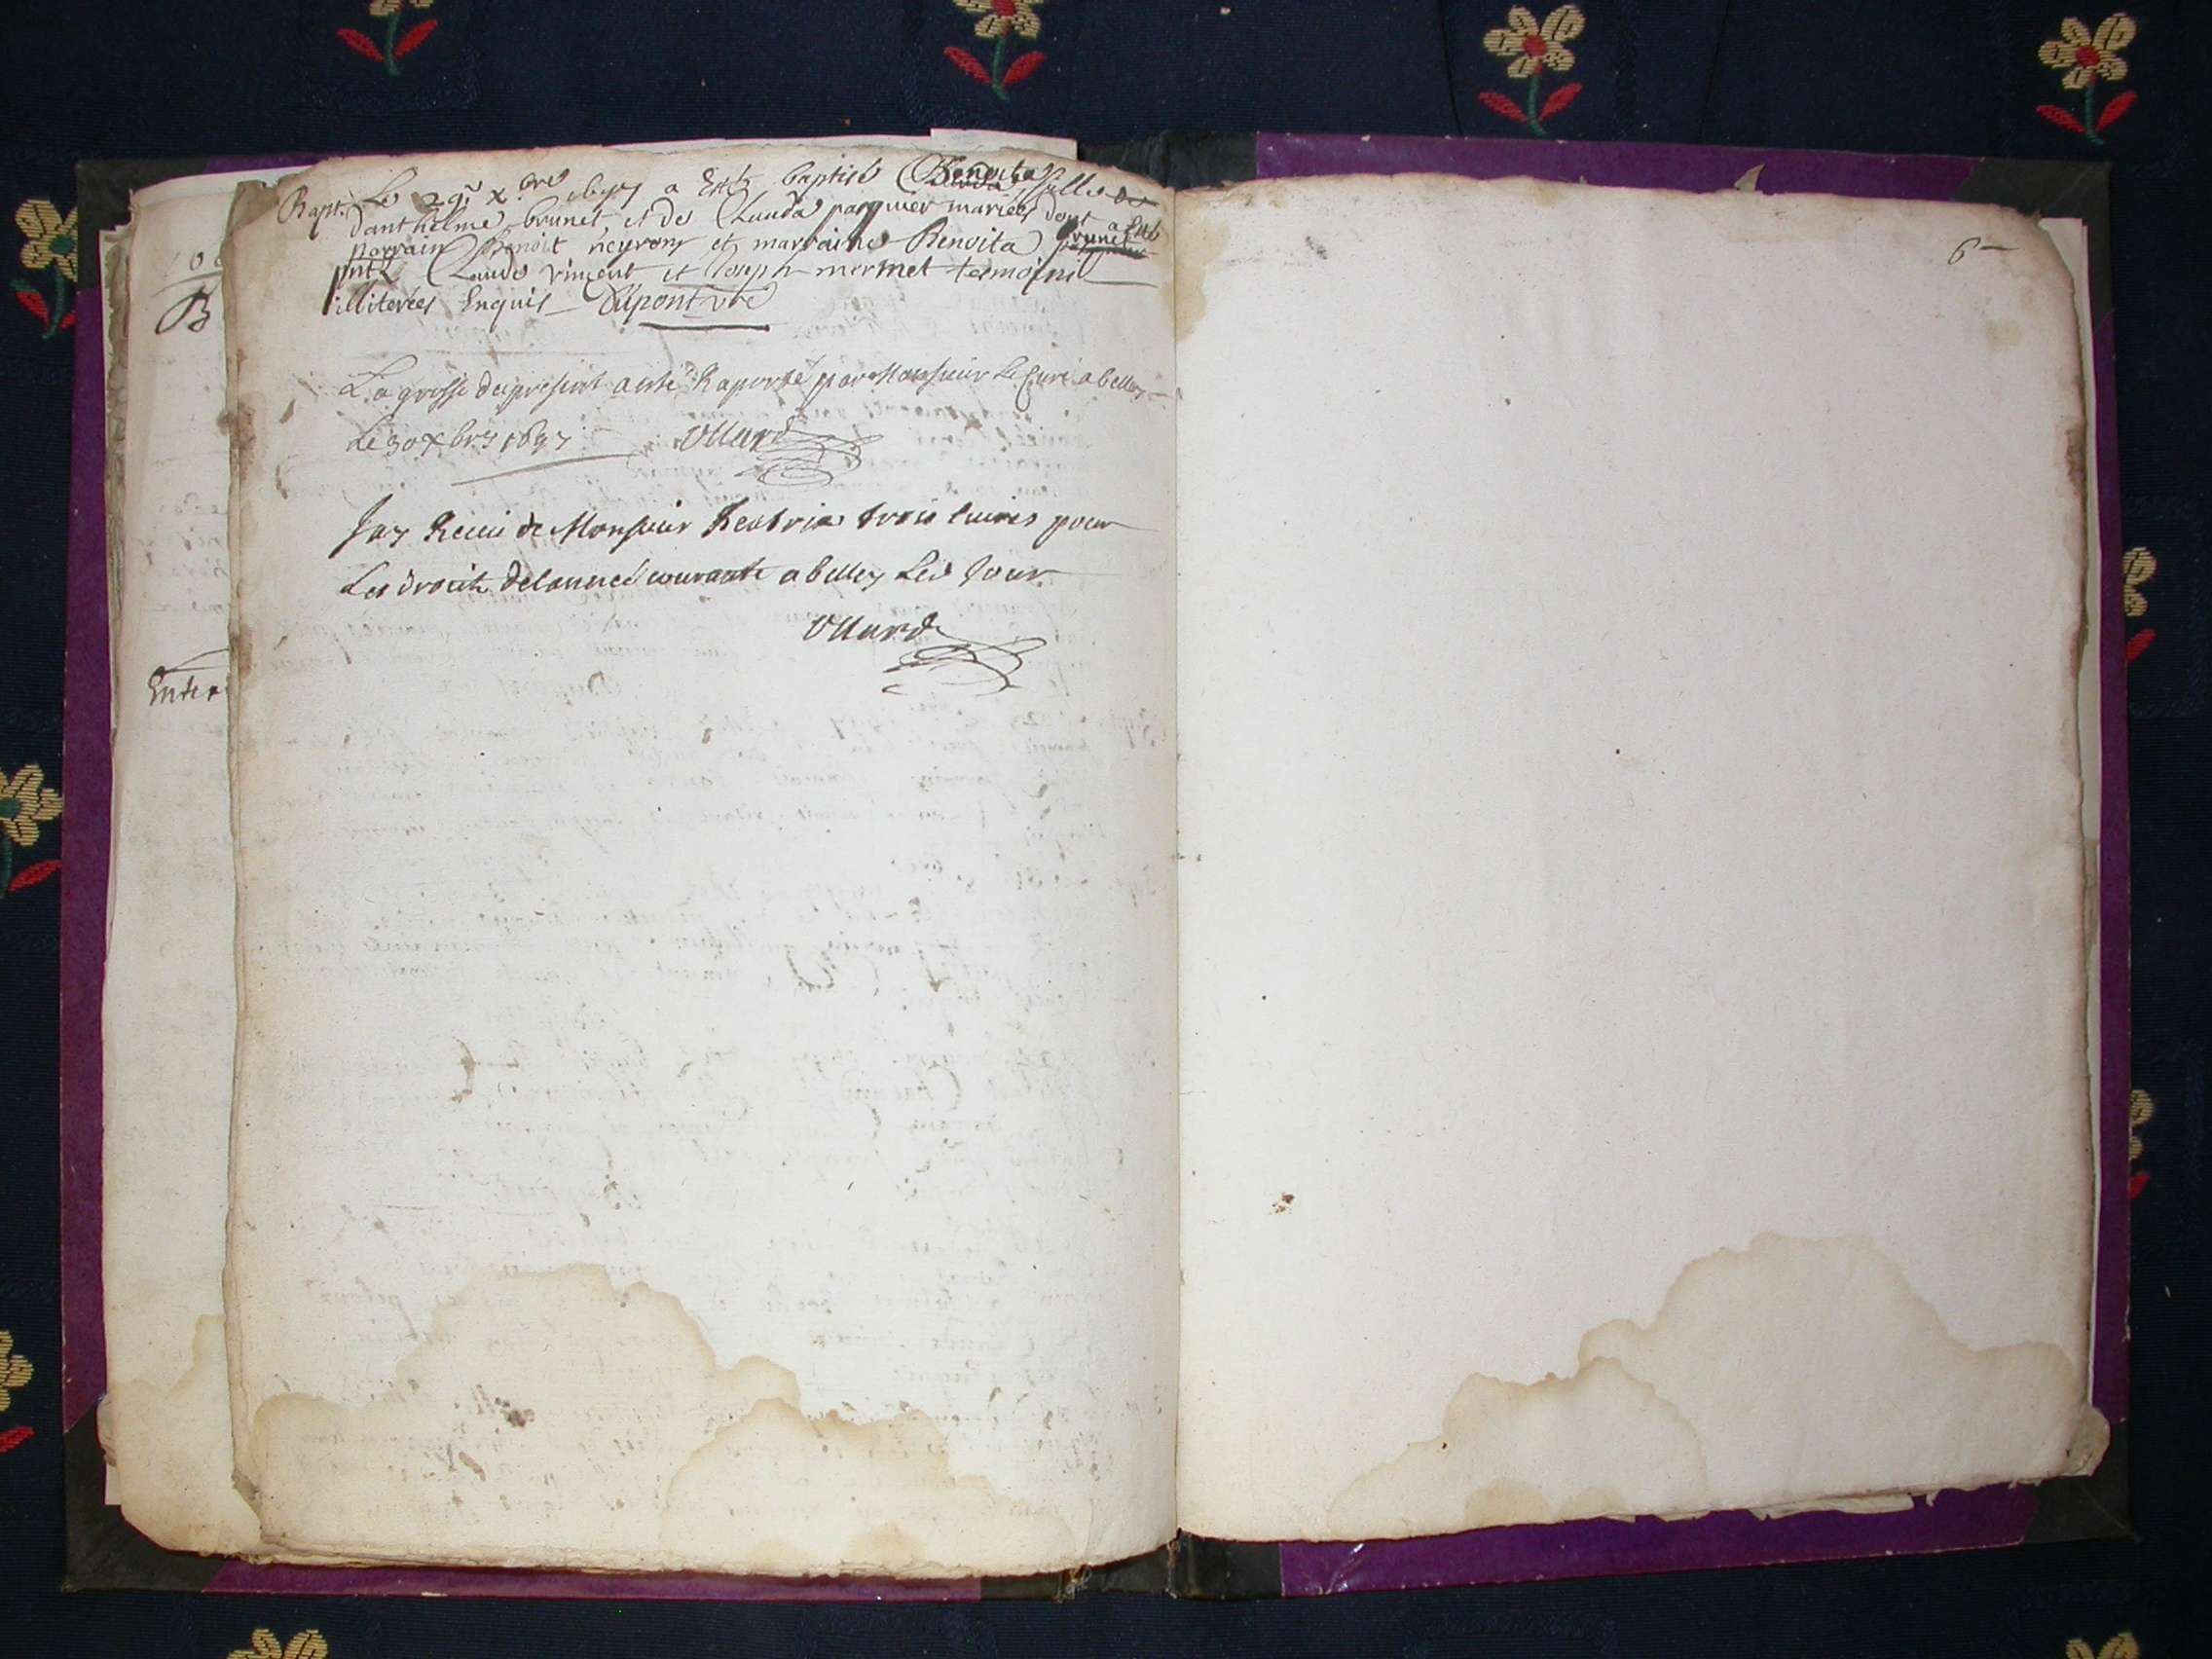 Bapt. Le 29.e x.bre 1697 a Esté baptisé Benoita fille
danthelme brunet et de Clauda pasquier mariés dont a esté
parrain Benoit neyron et marraine Benoita brunet
pnts Claude vincent et Joseph mermet temoins
illiterés Enquis Dupont vre
La grosse du present a esté Raporté par Monsieur Le Curé a belley
Le 30 xbre 1697 Ullard
Jay Receu de Monsieur trois livres pour
Les droits de lannée courante a belley Led Jour
Ullard
6
B
Enter